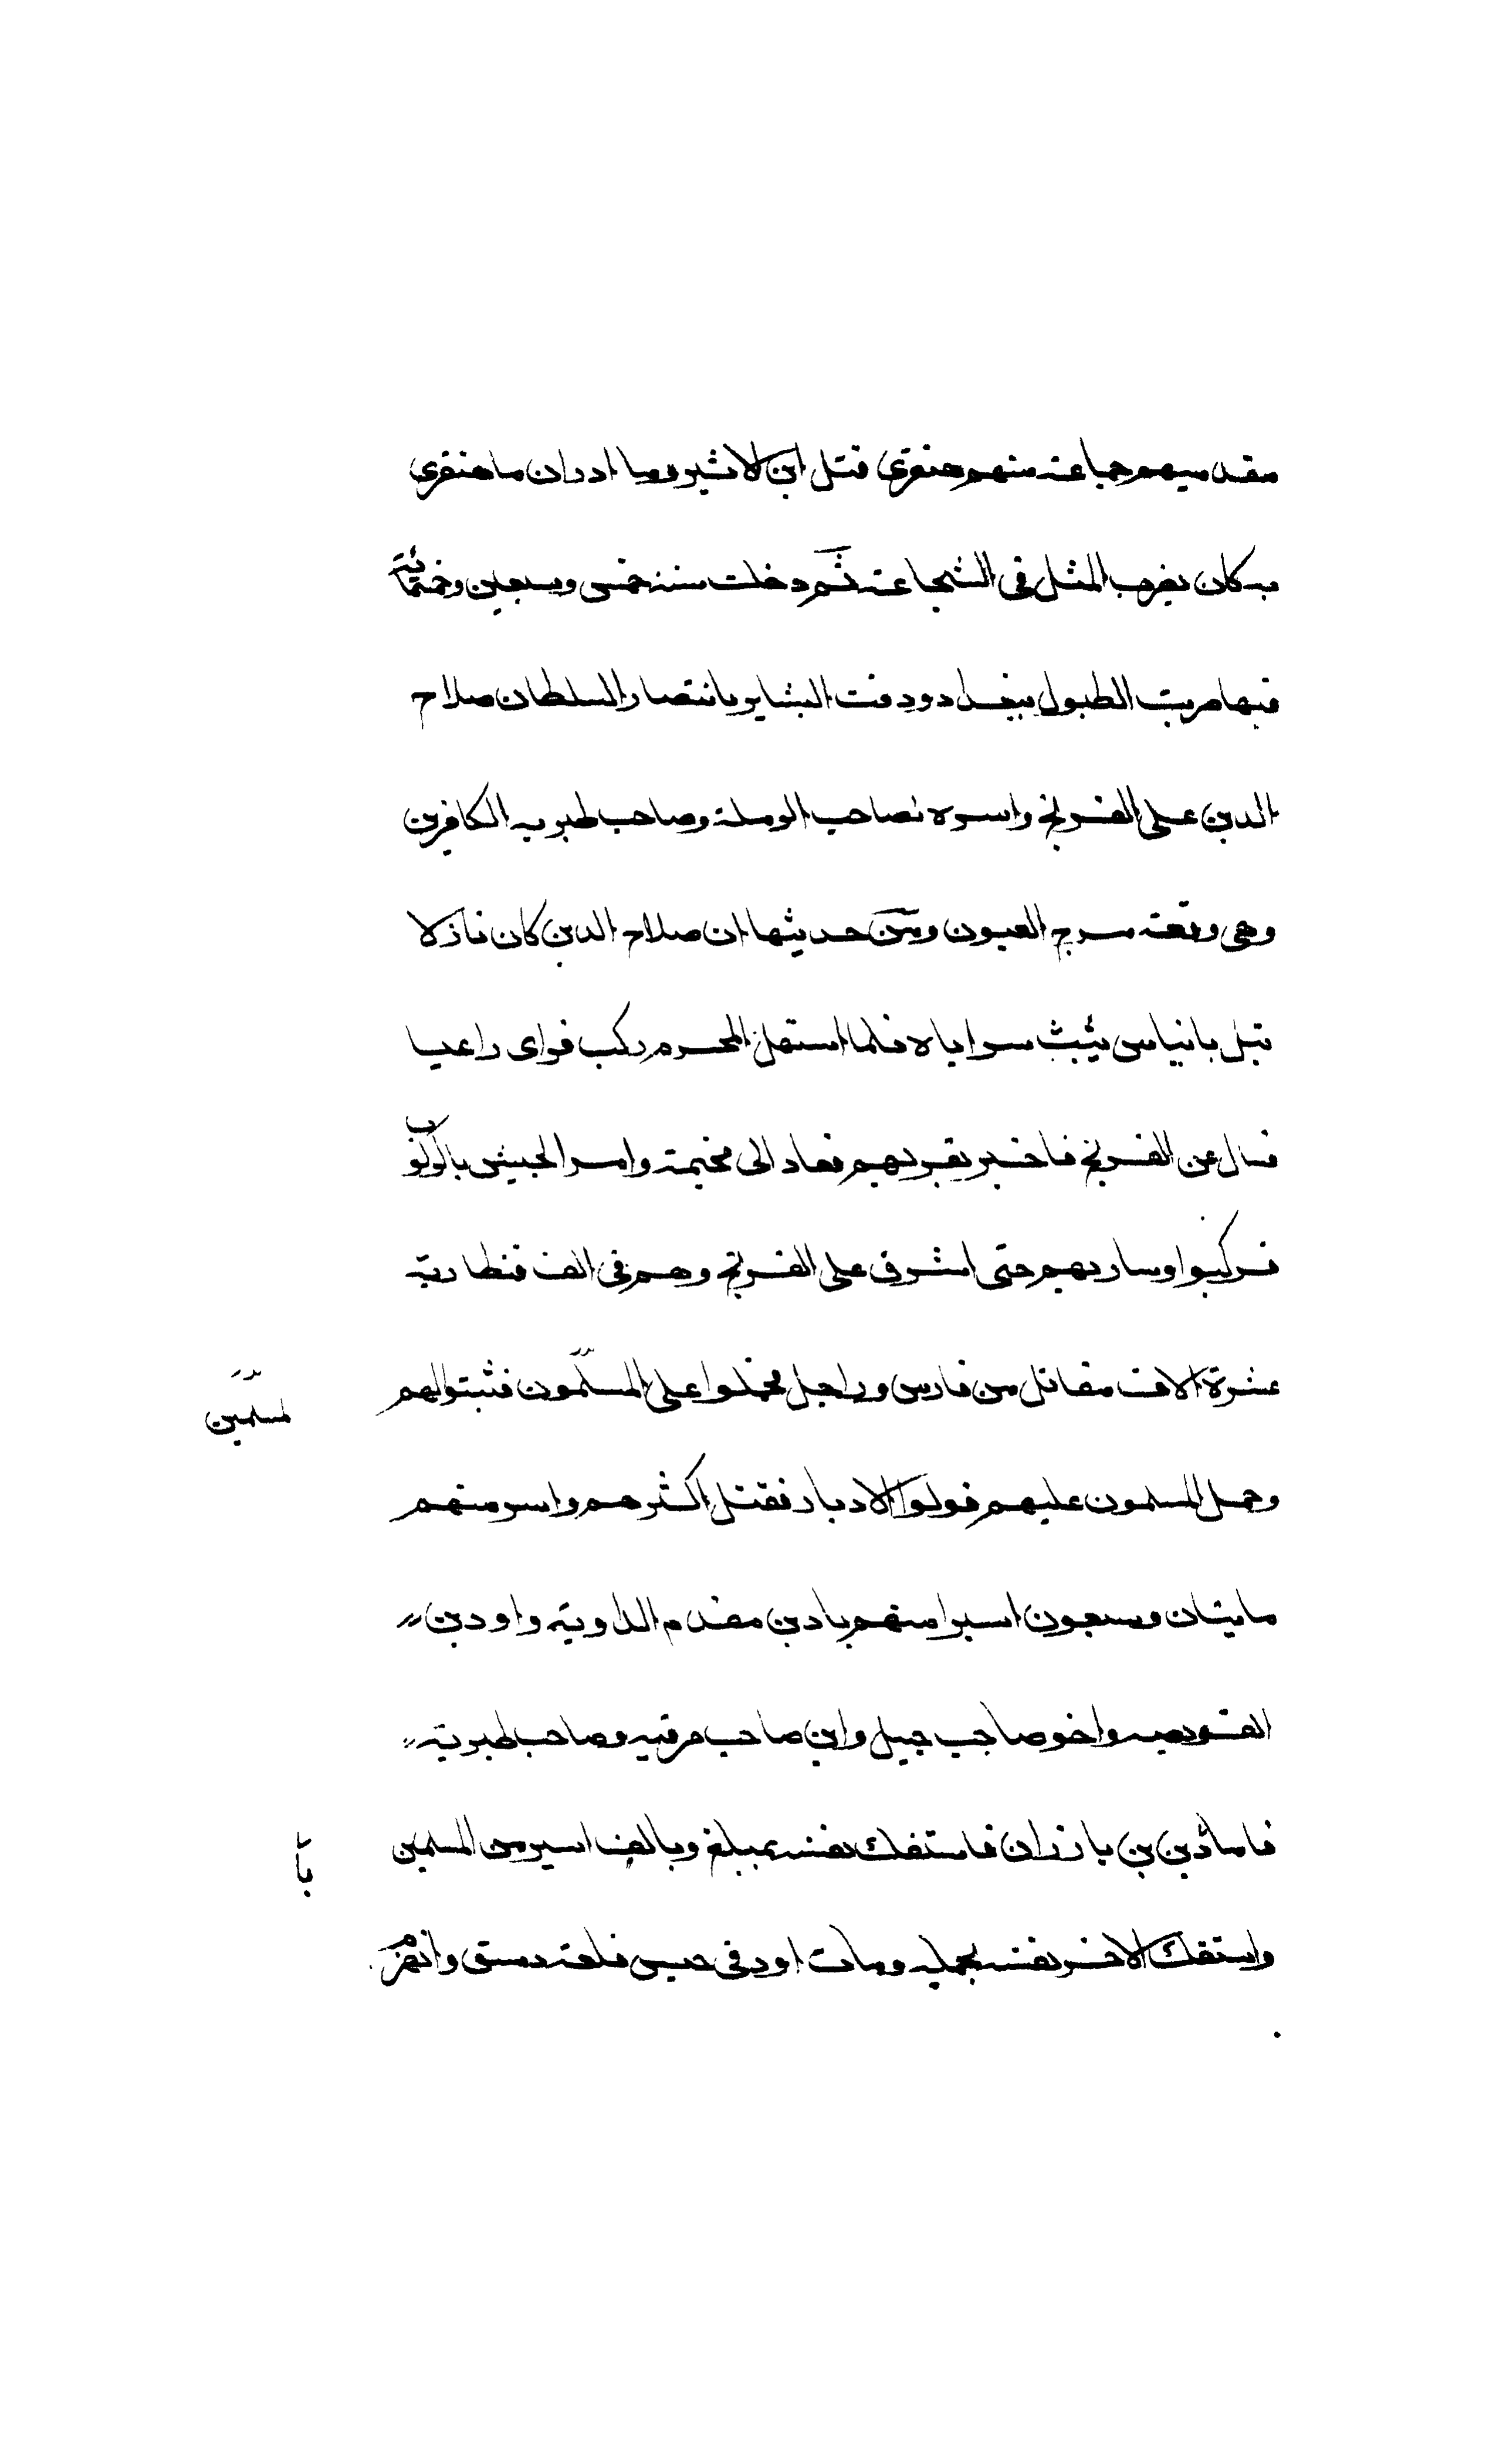 مقدميهم جماعة منهم هنقرى قتل ابن الاثير وما ادران ما هنقرى
به كان يضرب المثل فى الشجاعة ثم دخلت سنة خمس وسبعين وخمسمائة
فيها ضربت الطبول ببغداد ودقت البشاير بانتصار السلطان صلاح
الدين على الفرنج واسره لصاحب الرملة وصاحب طبريه الكافرين
وهى وقعة مرج العيون ومن حديثها ان صلاح الدين كان نازلا
تبل بانياس يبث سراياه فلما استهل المحرم ركب فراى راعيا
فسال عن الفرنج فاخبر بقربهم فعاد الى مخيمة وامر الجيش بالركوب
فركبوا وسار بهم حتى اشرف على الفرنج وهم فى الف قنطارية
عشرة الاف مقاتل من فارس وراجل فحملوا على المسلمون فثبتوا لهم
لمسلمين
وحمل المسلمون عليهم فولوا الادبار فقتل اكثرهم واسر منهم
مايتان وسبعون اسيرا منهم بادين مقدم الداوية واود بن
القومصيه واخو صاحب جبيل وابن صاحب مرقيه وصاحب طبرية
فاما بن بن بارزان فاستفك نفسه بمبلغ وبالف اسير من المسلمين
با
واستفك الاخر نفسه بجمله ومات اود فى حبس قلعة دمشق وانهزم